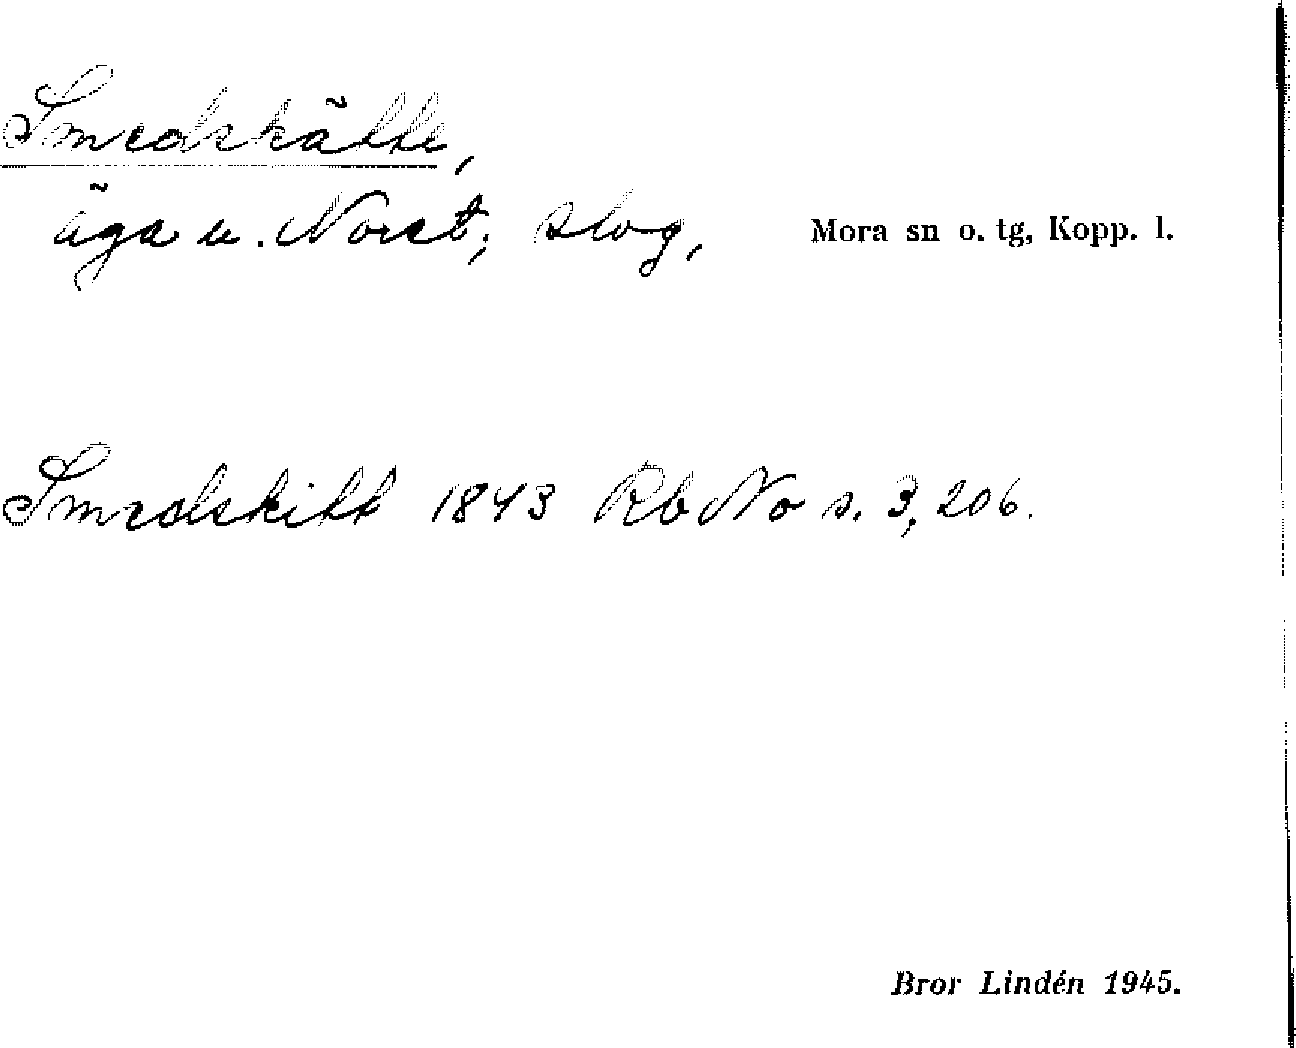 Smedskälte,
äga u. Noret; slog, Mora sn o. tg, Kopp. l.
Smedskitt 1843 Rb No s. 3, 206.
Bror Lindén 1945.